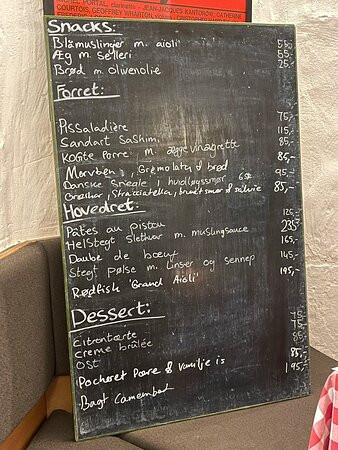 EL PORTAL, clarinette - JEAN-JACQUES KANTOROW, CATHERINE
COURTOIS, GEOFFREY WHARTON, violon
Snacks:
Blåmuslinger m. aioli
Æg m. selleri 55,-
Brød m. olivenolie 25,-
Forret:
Pissaladière 75,-
Sandart Sashimi 115,-
Kogte Porre m. ægge vinagrette 85,-
Marvben, Gremolata & brød 85,-
Danske Snegle i hvidløgssmør 6stk 95,-
Stracciatella, brunet smør & salvie 85,-
Hovedret:
Pâtes au pistou 125,-
Helstegt slethvar m. muslingsauce 235,-
Daube de bœuf 165,-
Stegt pølse m. linser og sennep 145,-
Rødfisk 'Grand Aioli' 195,-
Dessert:
Citrontærte
creme brûlée
OST
Pocheret Pære & vanilje is 85,-
Bagt Camembert 195,-